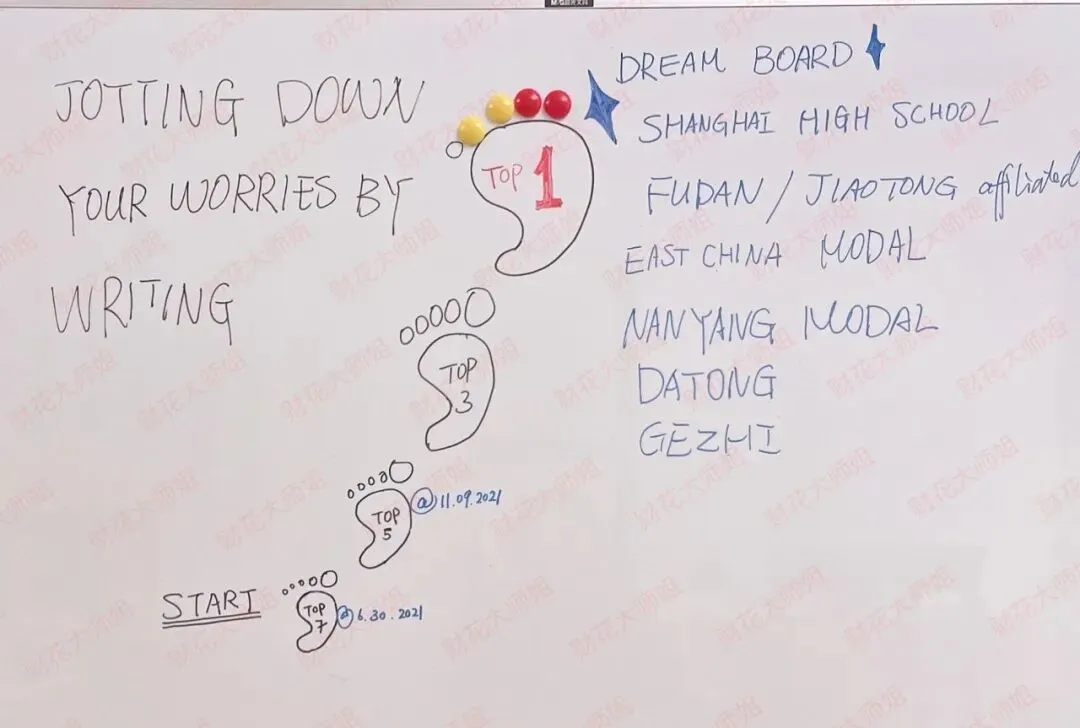 JOTTING DOWN
YOUR WORRIES BY
WRITING
TOP 1
TOP
3
TOP
5
@11.09.2021
START
TOP
7
@6.30.2021
DREAM BOARD
SHANGHAI HIGH SCHOOL
FUDAN / JIAOTONG affiliated
EAST CHINA MODAL
NANYANG MODAL
DATONG
GEZHI
财花大师姐